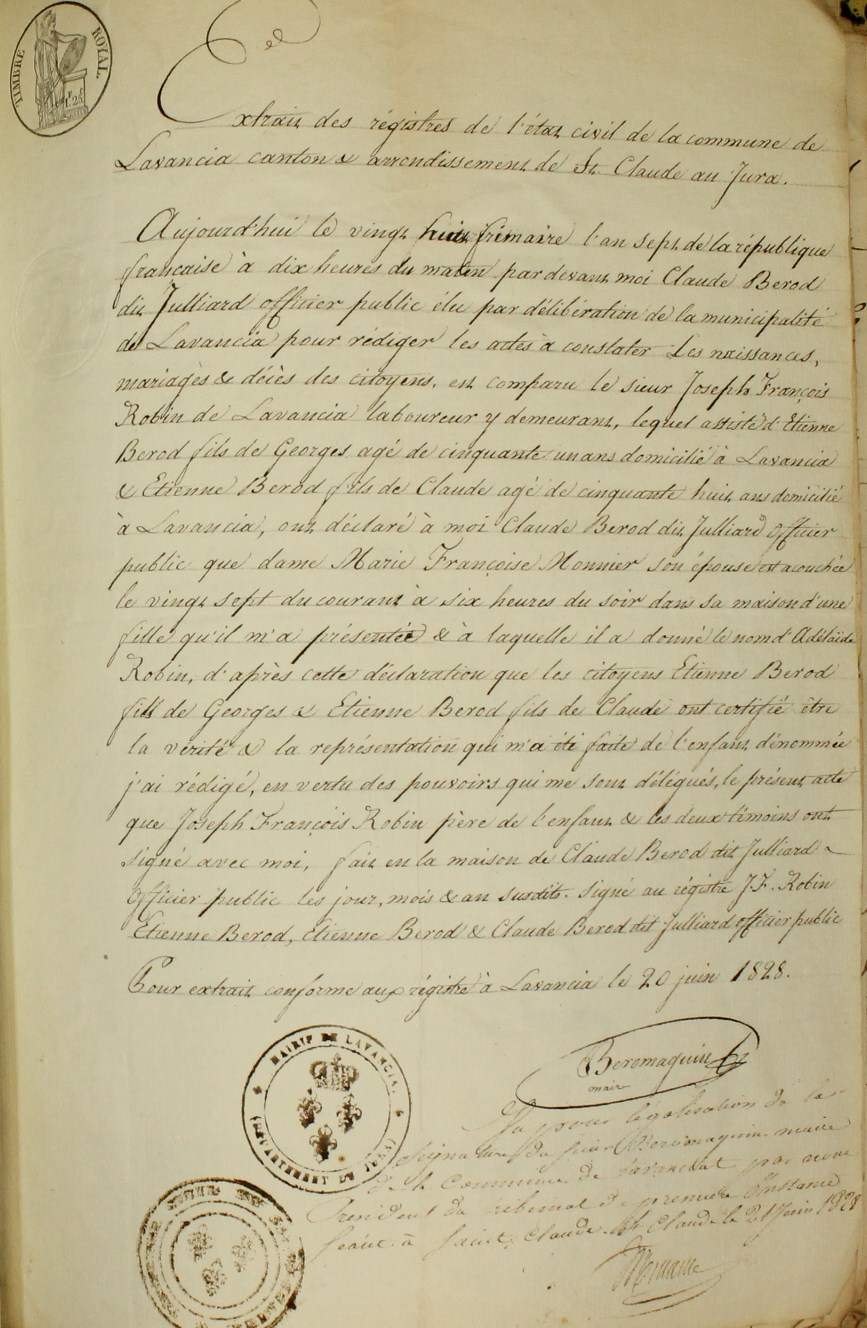 TIMBRE ROYAL
Extrait des régistres de l'état civil de la commune de
Lavancia canton & arrondissement de St. Claude au Jura.
Aujourd'hui le vingt huit frimaire l'an sept de la république
française à dix heures du matin par devant moi Claude Berod
dit Julliard officier public élu par délibération de la municipalité
de Lavancia pour rédiger les actes à constater les naissances,
mariages & décès des citoyens, est comparu le sieur Joseph François
Robin de Lavancia laboureur y demeurant, lequel assisté d'Etienne
Berod fils de Georges agé de cinquante un ans domicilié à Lavancia
& Etienne Berod fils de Claude agé de cinquante huit ans domicilié
à Lavancia, ont déclaré à moi Claude Berod dit Julliard officier
public que dame Marie Françoise Monnier son épouse est acouchée
le vingt sept du courant à six heures du soir dans sa maison d'une
fille qu'il m'a présentée & à laquelle il a donné le nom d'Adélaïde
Robin, d'après cette déclaration que les citoyens Etienne Berod
fils de Georges & Etienne Berod fils de Claude ont certifié être
la verité & la représentation qui m'a été faite de l'enfant dénommée
j'ai rédigé, en vertu des pouvoirs qui me sont délégués, le présent acte
que Joseph François Robin père de l'enfant & les deux témoins ont
signé avec moi, fait en la maison de Claude Berod dit Julliard
officier public les jour, mois & an susdits. Signé au régistre J.F. Robin
Etienne Berod, Etienne Berod & Claude Berod dit Julliard officier public
Pour extrait conforme aux régistre à Lavancia le 20 juin 1828.
MAIRIE DE LAVANCIA.
(DÉPARTEMENT DU JURA)
Beromaquin
maire
Vu pour légalisation de la
signature du sieur Beromaquin maire
de la Commune de Lavanciat par nous
Président du tribunal de première Instance
séant à Saint Claude. St Claude le 21 Juin 1828